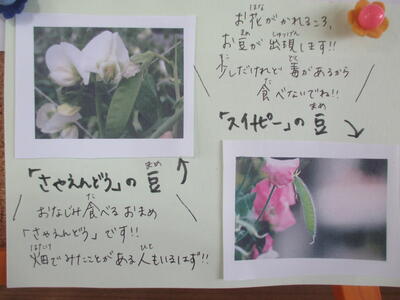 お花がかれるころ、
お豆が出現します!!
少しだけれど毒があるから
食べないでね!!
「スイトピー」の豆
「さやえんどう」の豆
おなじみ食べるおまめ
「さやえんどう」です!!
畑でみたことがある人もいるはず!!